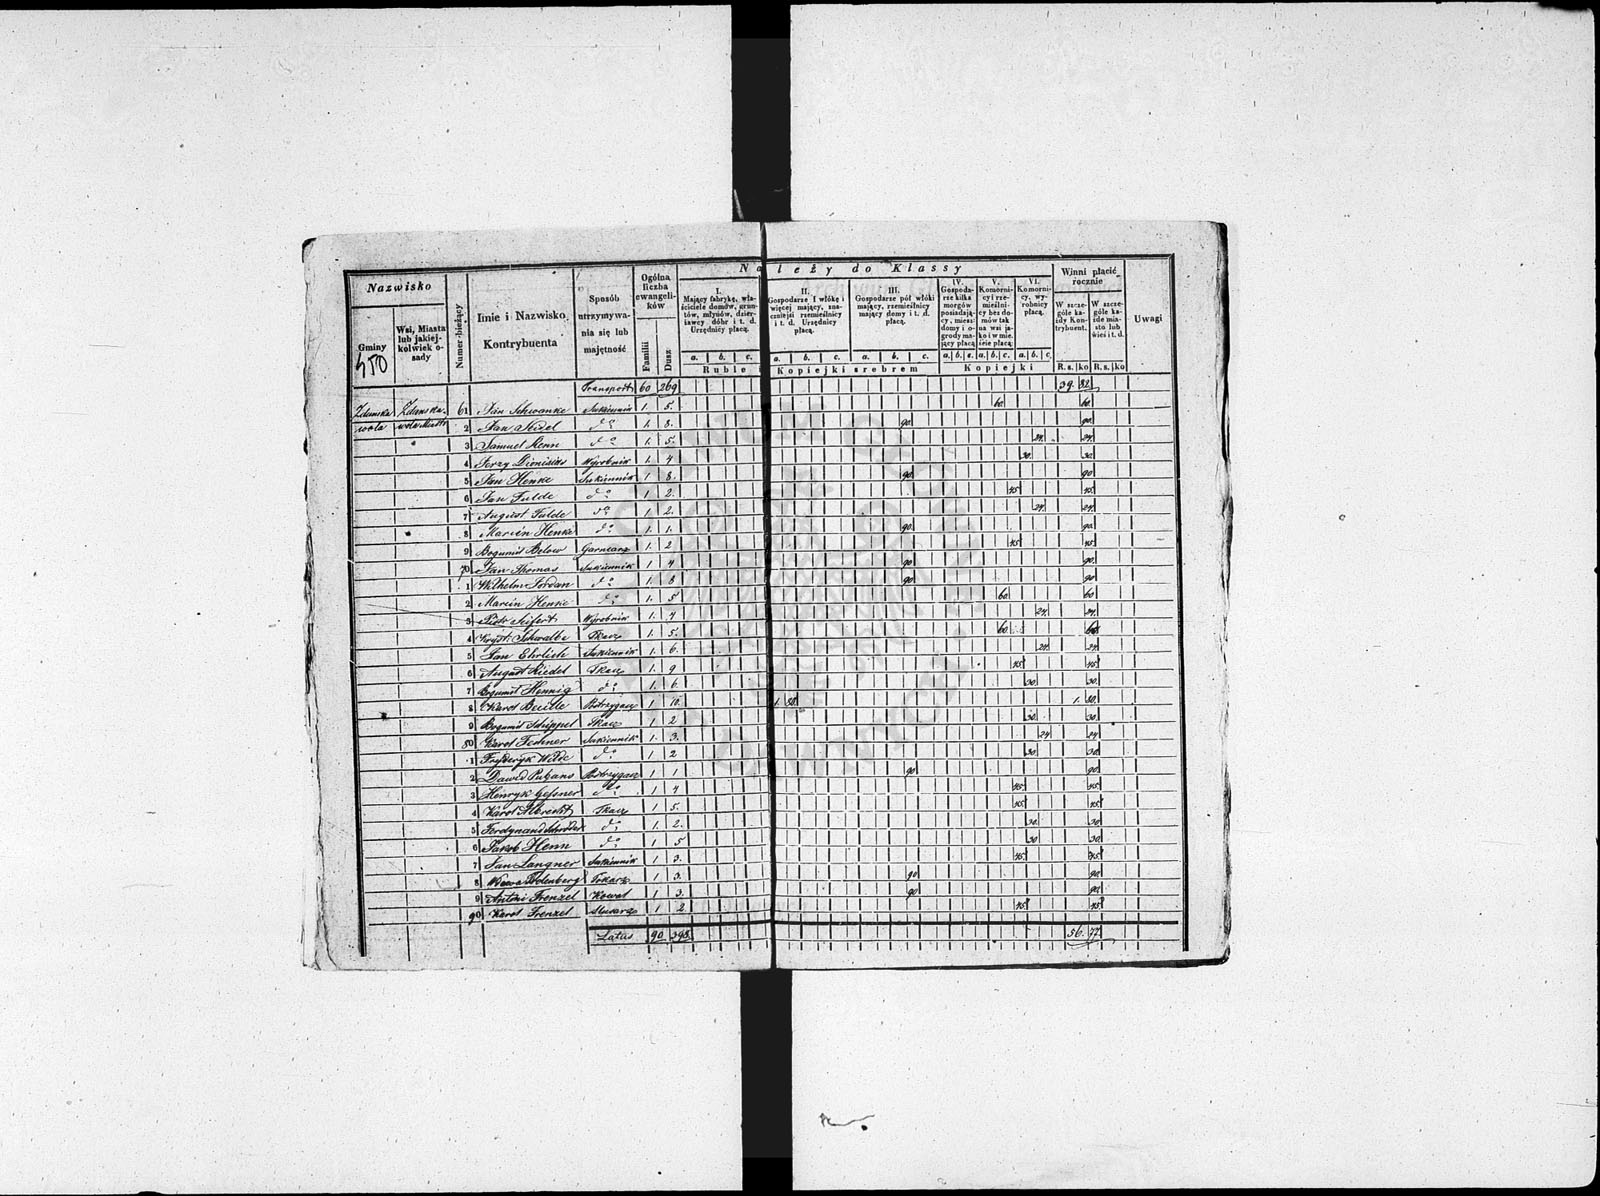 Nazwisko
Gminy
Wsi, Miasta lub jakiejkolwiek osady
Numer bieżący
Imie i Nazwisko Kontrybuenta
Sposób utrzymywania się lub majętność
Ogólna liczba ewangelików
Familii
Dusz
Należy do Klassy
I. Mający fabrykę, właściciele domów, gruntów, młynów, dzierżawcy dóbr i t. d. Urzędnicy płacą.
II. Gospodarze I włókę i więcej mający, znaczniejsi rzemieślnicy i t. d. Urzędnicy płacą.
III. Gospodarze pół włóki mający, rzemieślnicy mający domy i t. d. płacą.
IV. Gospodarze kilka morgów posiadający, mieszdomy i ogrody mający płacą
V. Komornicy i rzemieślnicy bez domów tak na wsi jako i w mieście płacą
VI. Komornicy, wyrobnicy płacą.
Winni płacić rocznie
W szczególe każdy Kontrybuent.
W szczególe każde miasto lub wieś i t. d.
Uwagi
a. b. c. a. b. c. a. b. c. a. b. c. a. b. c. a. b. c.
Ruble i Kopiejki srebrem Kopiejki R.s. ko R.s. ko
450
Transport 60 269 39. 82.
Zdunska Zdunska 61 Jan Schwanke Sukiennik 1. 5. 60. 60.
wola wola Miasto 2 Jan Seidel do 1. 8. 90. 90.
3 Samuel Henn do 1. 5. 24. 24.
4 Jerzy Dionisius Wyrobnik 1. 4 30. 30.
5 Jan Henke Sukiennik 1 8. 90. 90
6 Jan Fulde do 1 2. 45 45
7 August Fulde do 1 2. 24. 24.
8 Marcin Henke do 1. 1. 90. 90.
9 Bogumił Below Garncarz 1. 2 45 45
70 Jan Thomas Sukiennik 1 4 90 90
1 Wilhelm Jordan do 1. 8 90. 90
2 Marcin Henke do 1. 5 60. 60
3 Piotr Seifert Wyrobnik 1. 4 24. 24.
4 Kryst. Schwalbe Tkacz 1. 5. 60. 60.
5 Jan Ehrlich Sukiennik 1. 6. 24. 24.
6 August Riedel Tkacz 1. 9 45 45
7 Bogumił Hennig do 1. 6. 30. 30.
8 Karol Postrzygacz 1 10. 1. 50. 1. 50.
9 Bogumił Schippel Tkacz 1 2 30. 30.
80 Karol Fechner Sukiennik 1. 3. 24 24
1 Fryderyk Wilde do 1 2 30. 30
2 Dawid Postrzygacz 1 1 90 90.
3 Henryk Gessner do 1 4 45 45
4 Karol Albrecht Tkacz 1 5. 45 45
5 Ferdynand do 1. 2. 30. 30.
6 Jakob Henn do 1 5 30 30.
7 Jan Langner Sukiennik 1 3. 45 45
8 Tokarz 1 3. 90 90.
9 Antoni Frenzel Kowal 1 3. 90 90.
90 Karol Frenzel 1 2 45 45
Latus 90. 398. 56. 77.